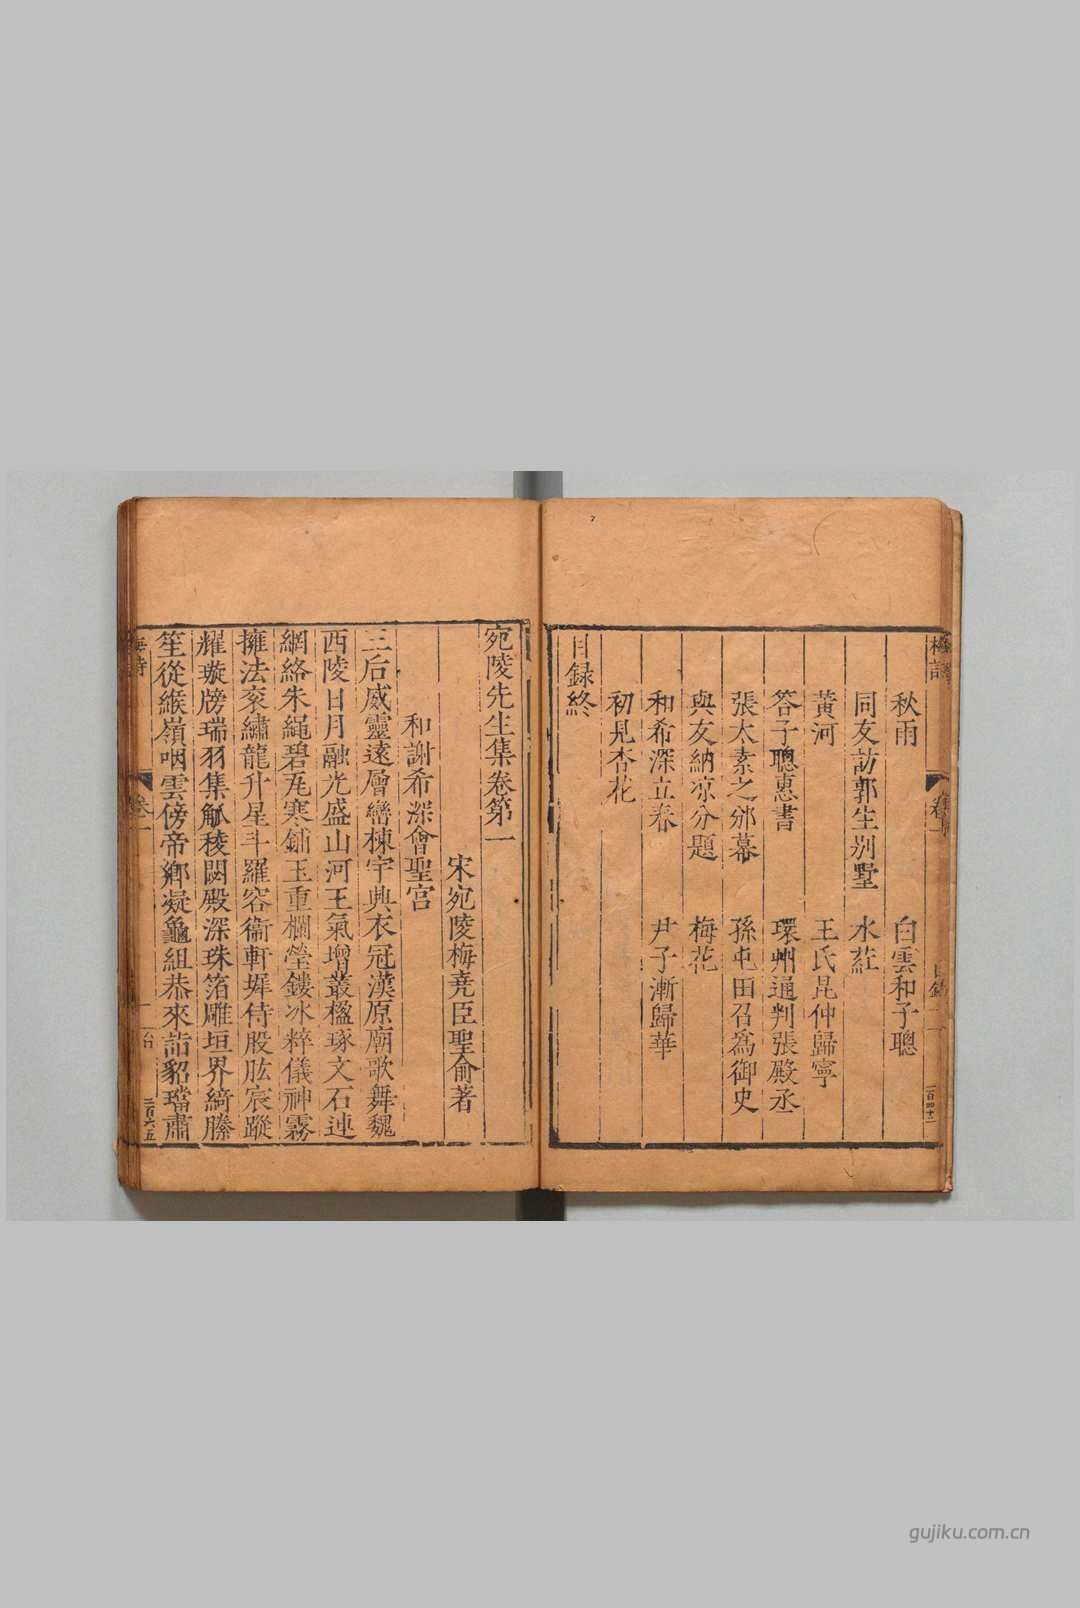 秋雨 白雲和子聰
同友訪郭生別墅 水葒
黃河 王氏昆仲歸寧
答子聰惠書 環州通判張殿丞
張太素之邠幕 孫屯田召爲御史
與友納凉分題 梅花
和希深立春 尹子漸歸華
初見杏花
目録終
宛陵先生集卷第一
宋宛陵梅堯臣聖俞著
和謝希深會聖宫
三后威靈遠層巒棟宇興衣冠漢原廟歌舞魏
西陵日月融光盛山河王氣增叢楹琢文石連
網絡朱繩碧瓦寒鋪玉重欄瑩鏤冰粹儀神霧
擁法衮繡龍升星斗羅容衞軒墀侍股肱宸蹤
耀璇牓瑞羽集觚稜闕殿深珠箔雕垣界綺塍
笙從緱嶺咽雲傍帝鄉凝龜組恭來詣貂璫肅
卷一
二百六五
gujiku.com.cn